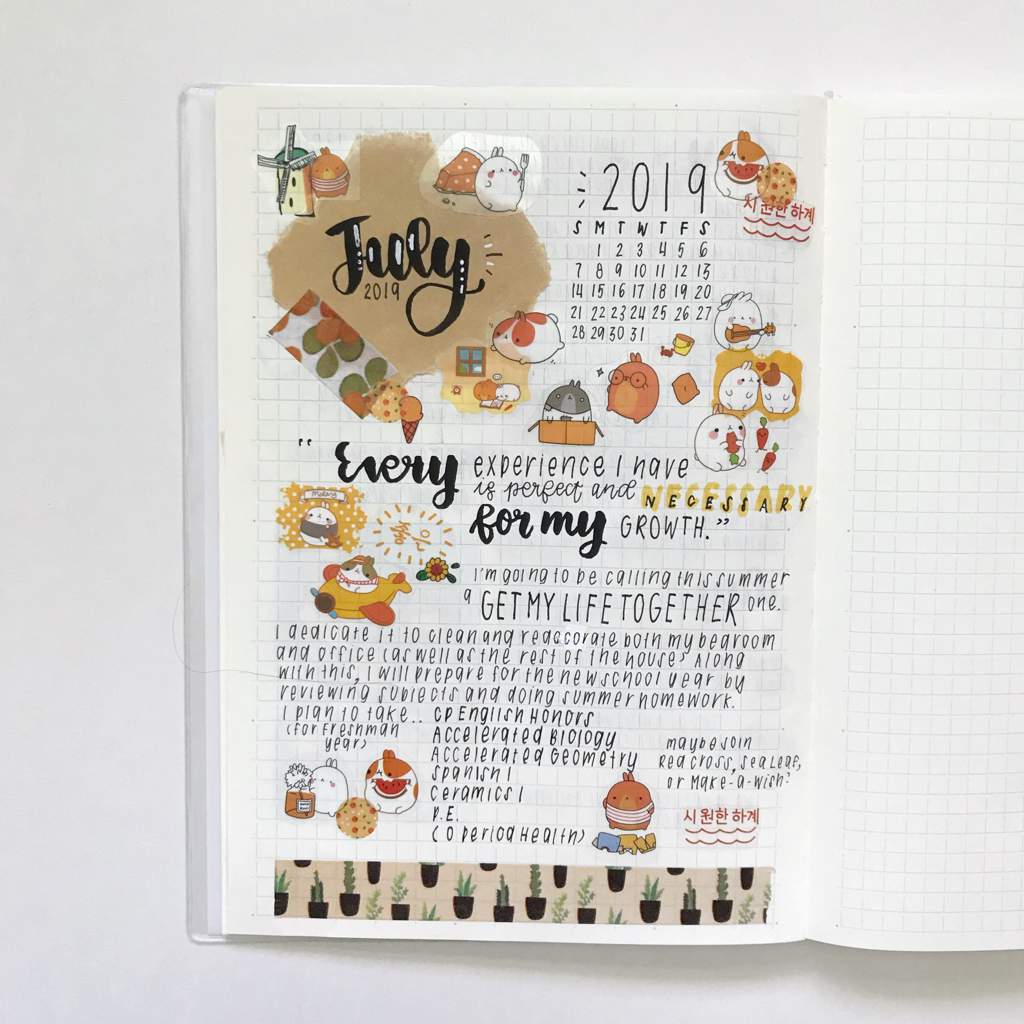 July
2019
2019
S M T W T F S
1 2 3 4 5 6
7 8 9 10 11 12 13
14 15 16 17 18 19 20
21 22 23 24 25 26 27
28 29 30 31
시원한 하계
"Every experience I have
is perfect and NECESSARY
for my GROWTH."
molang
I'm going to be calling this summer
a GET MY LIFE TOGETHER one.
I dedicate it to clean and redecorate both my bedroom
and office (as well as the rest of the house) Along
with this, I will prepare for the new school year by
reviewing subjects and doing summer homework.
I plan to take..
(for Freshman
year)
CP English Honors
Accelerated Biology
Accelerated Geometry
Spanish 1
Ceramics 1
P.E.
(0 period Health)
maybe join
Red Cross, Sea Leaf,
or Make-a-wish?
시원한 하계